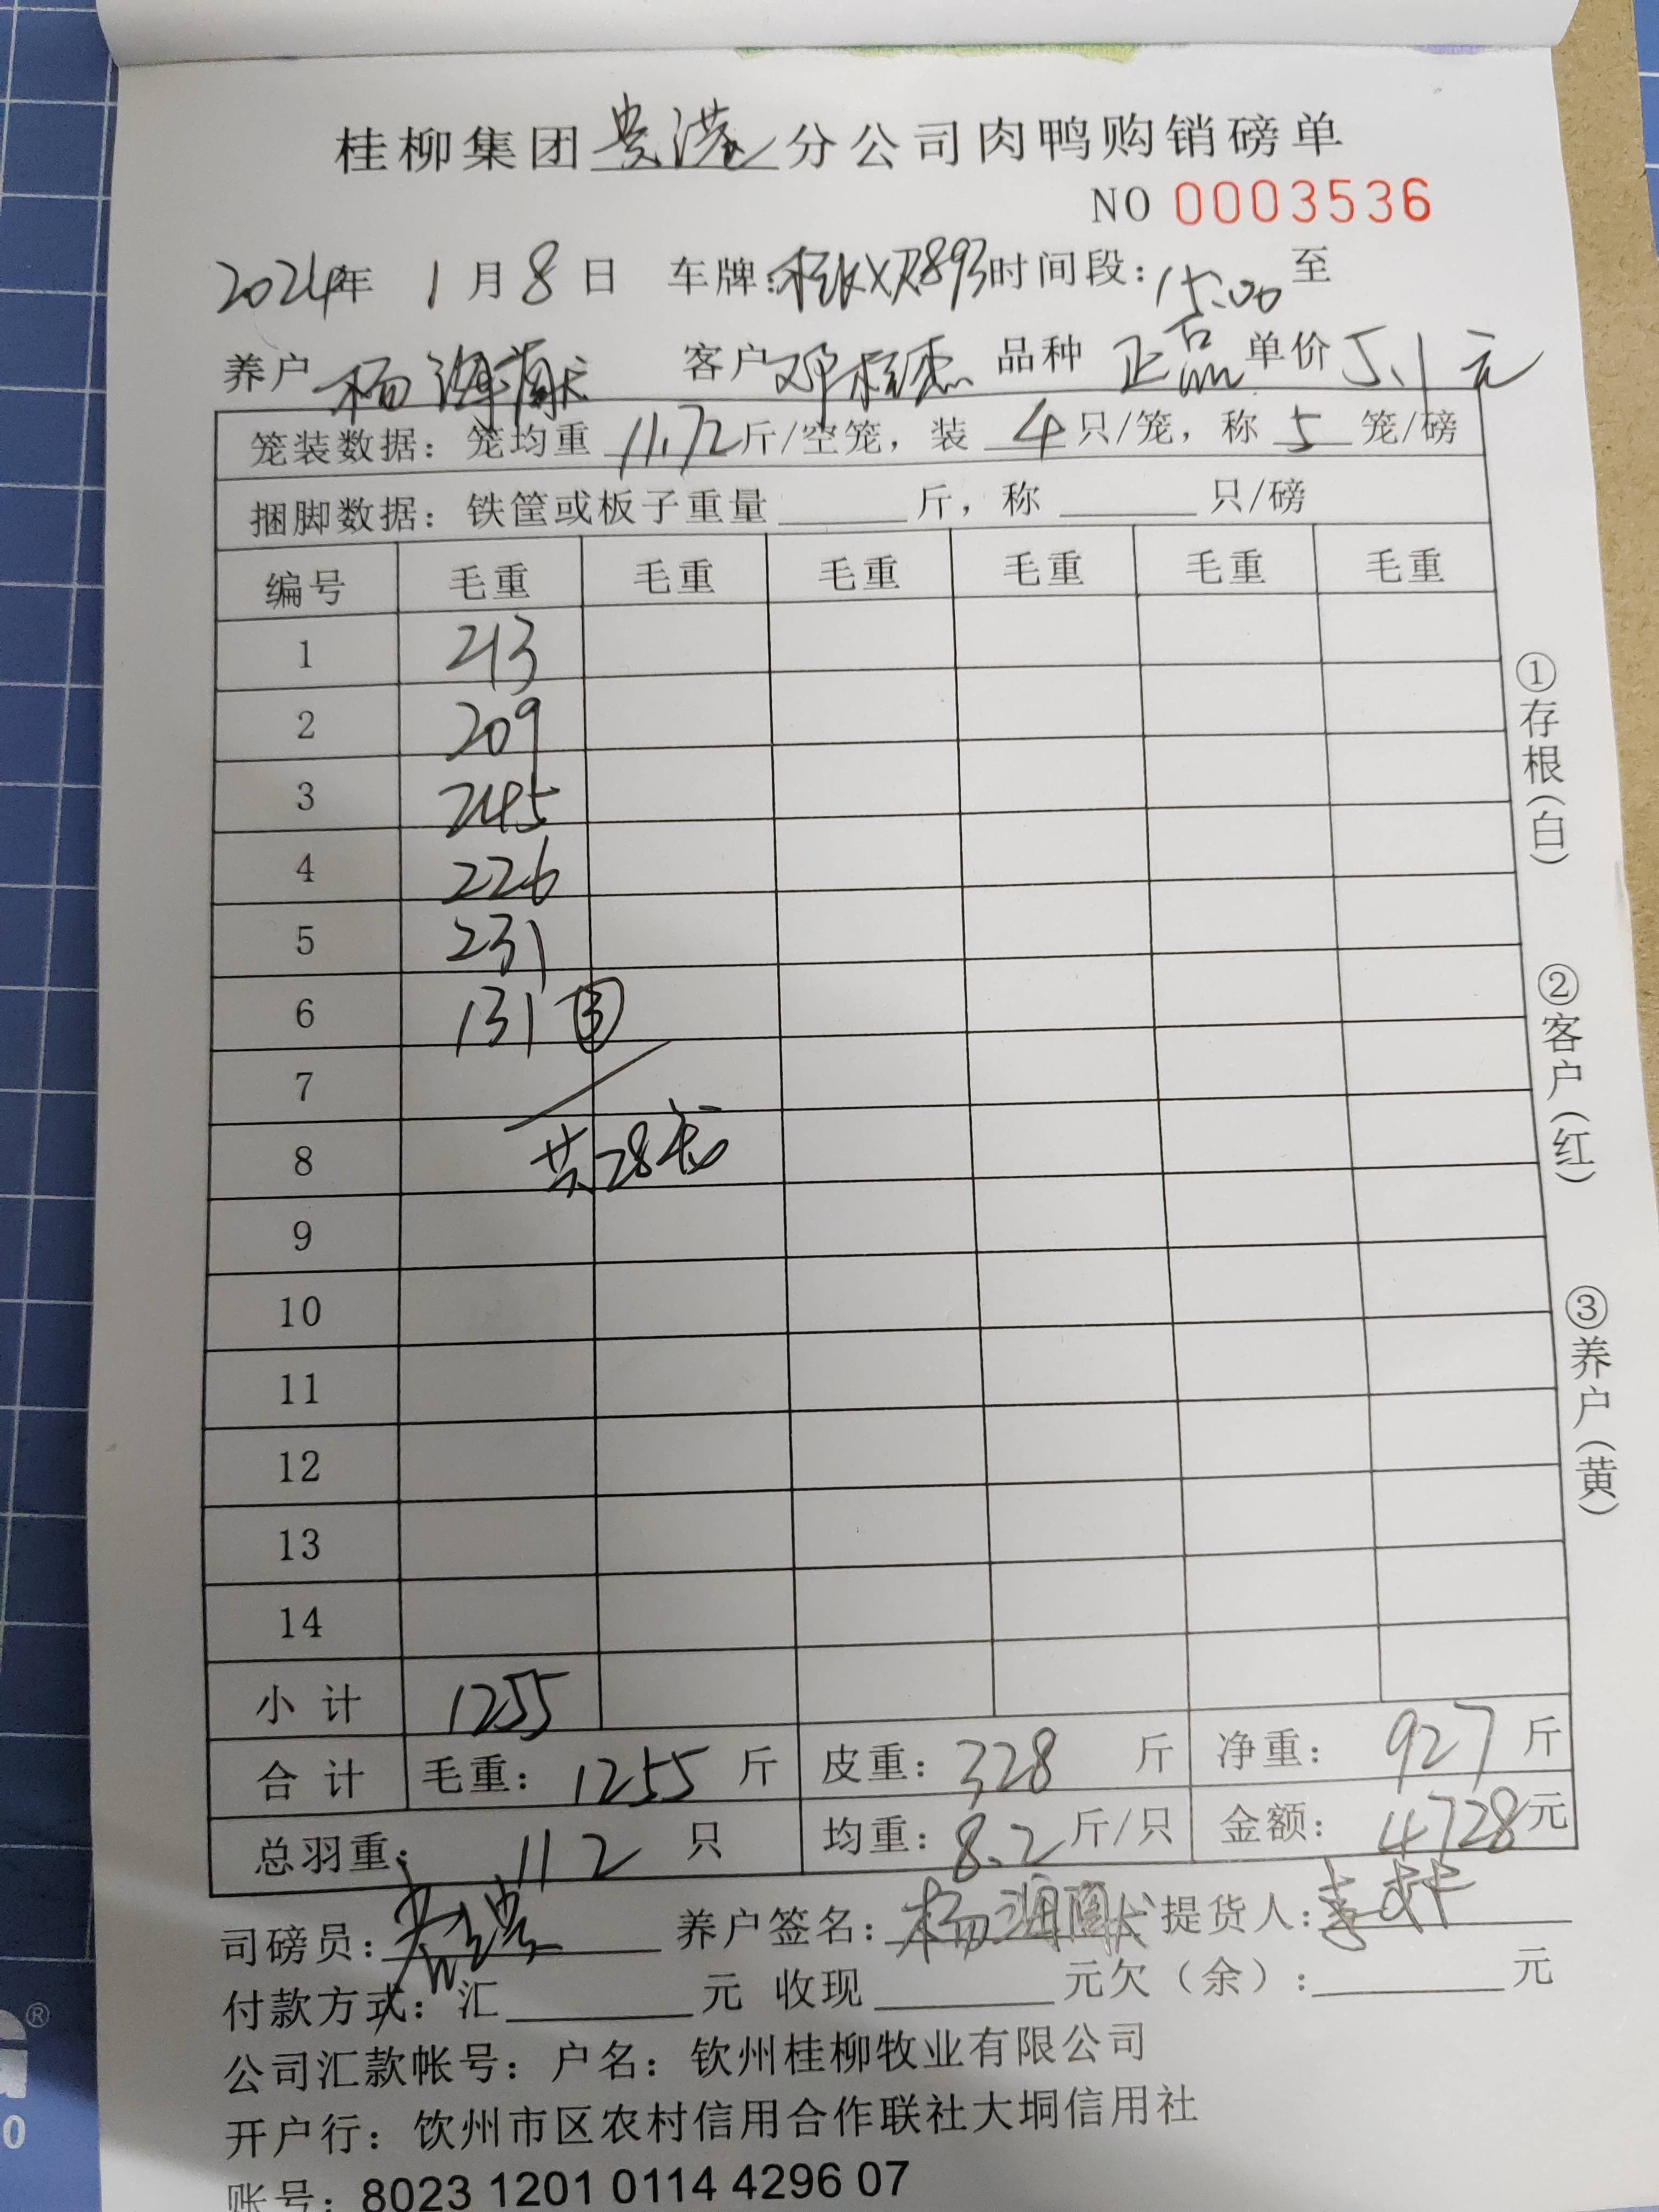 桂柳集团贵港分公司肉鸭购销磅单
NO 0003536
2024年 1月8日 车牌:桂KXR893时间段:15:00至
养户 杨海献 客户邓桂杰 品种 正品 单价5.1元
笼装数据: 笼均重 11.72斤/空笼, 装 4只/笼, 称 5 笼/磅
捆脚数据: 铁筐或板子重量______斤, 称______只/磅
编号 毛重 毛重 毛重 毛重 毛重 毛重
1 213
2 209
3 245
4 226
5 231
6 131 ③
7
8 共28笼
9
10
11
12
13
14
小计 1255
合计 毛重: 1255 斤 皮重: 328 斤 净重: 927 斤
总羽重: 112 只 均重: 8.2斤/只 金额: 4728元
司磅员: 养户签名: 杨海献 提货人:
付款方式: 汇______元 收现______元欠(余):______元
公司汇款帐号: 户名: 钦州桂柳牧业有限公司
开户行: 钦州市区农村信用合作联社大垌信用社
账号: 8023 1201 0114 4296 07
①存根(白)
②客户(红)
③养户(黄)
®
0